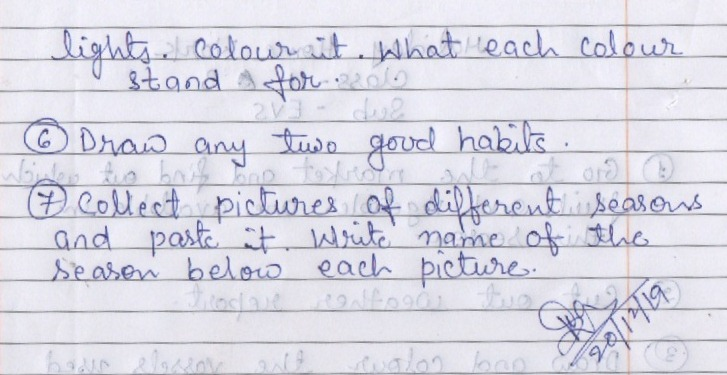 lights. Colour it. What each colour
stand for.
⑥ Draw any two good habits.
⑦ Collect pictures of different seasons
and paste it. Write name of the
season below each picture.
20/12/19